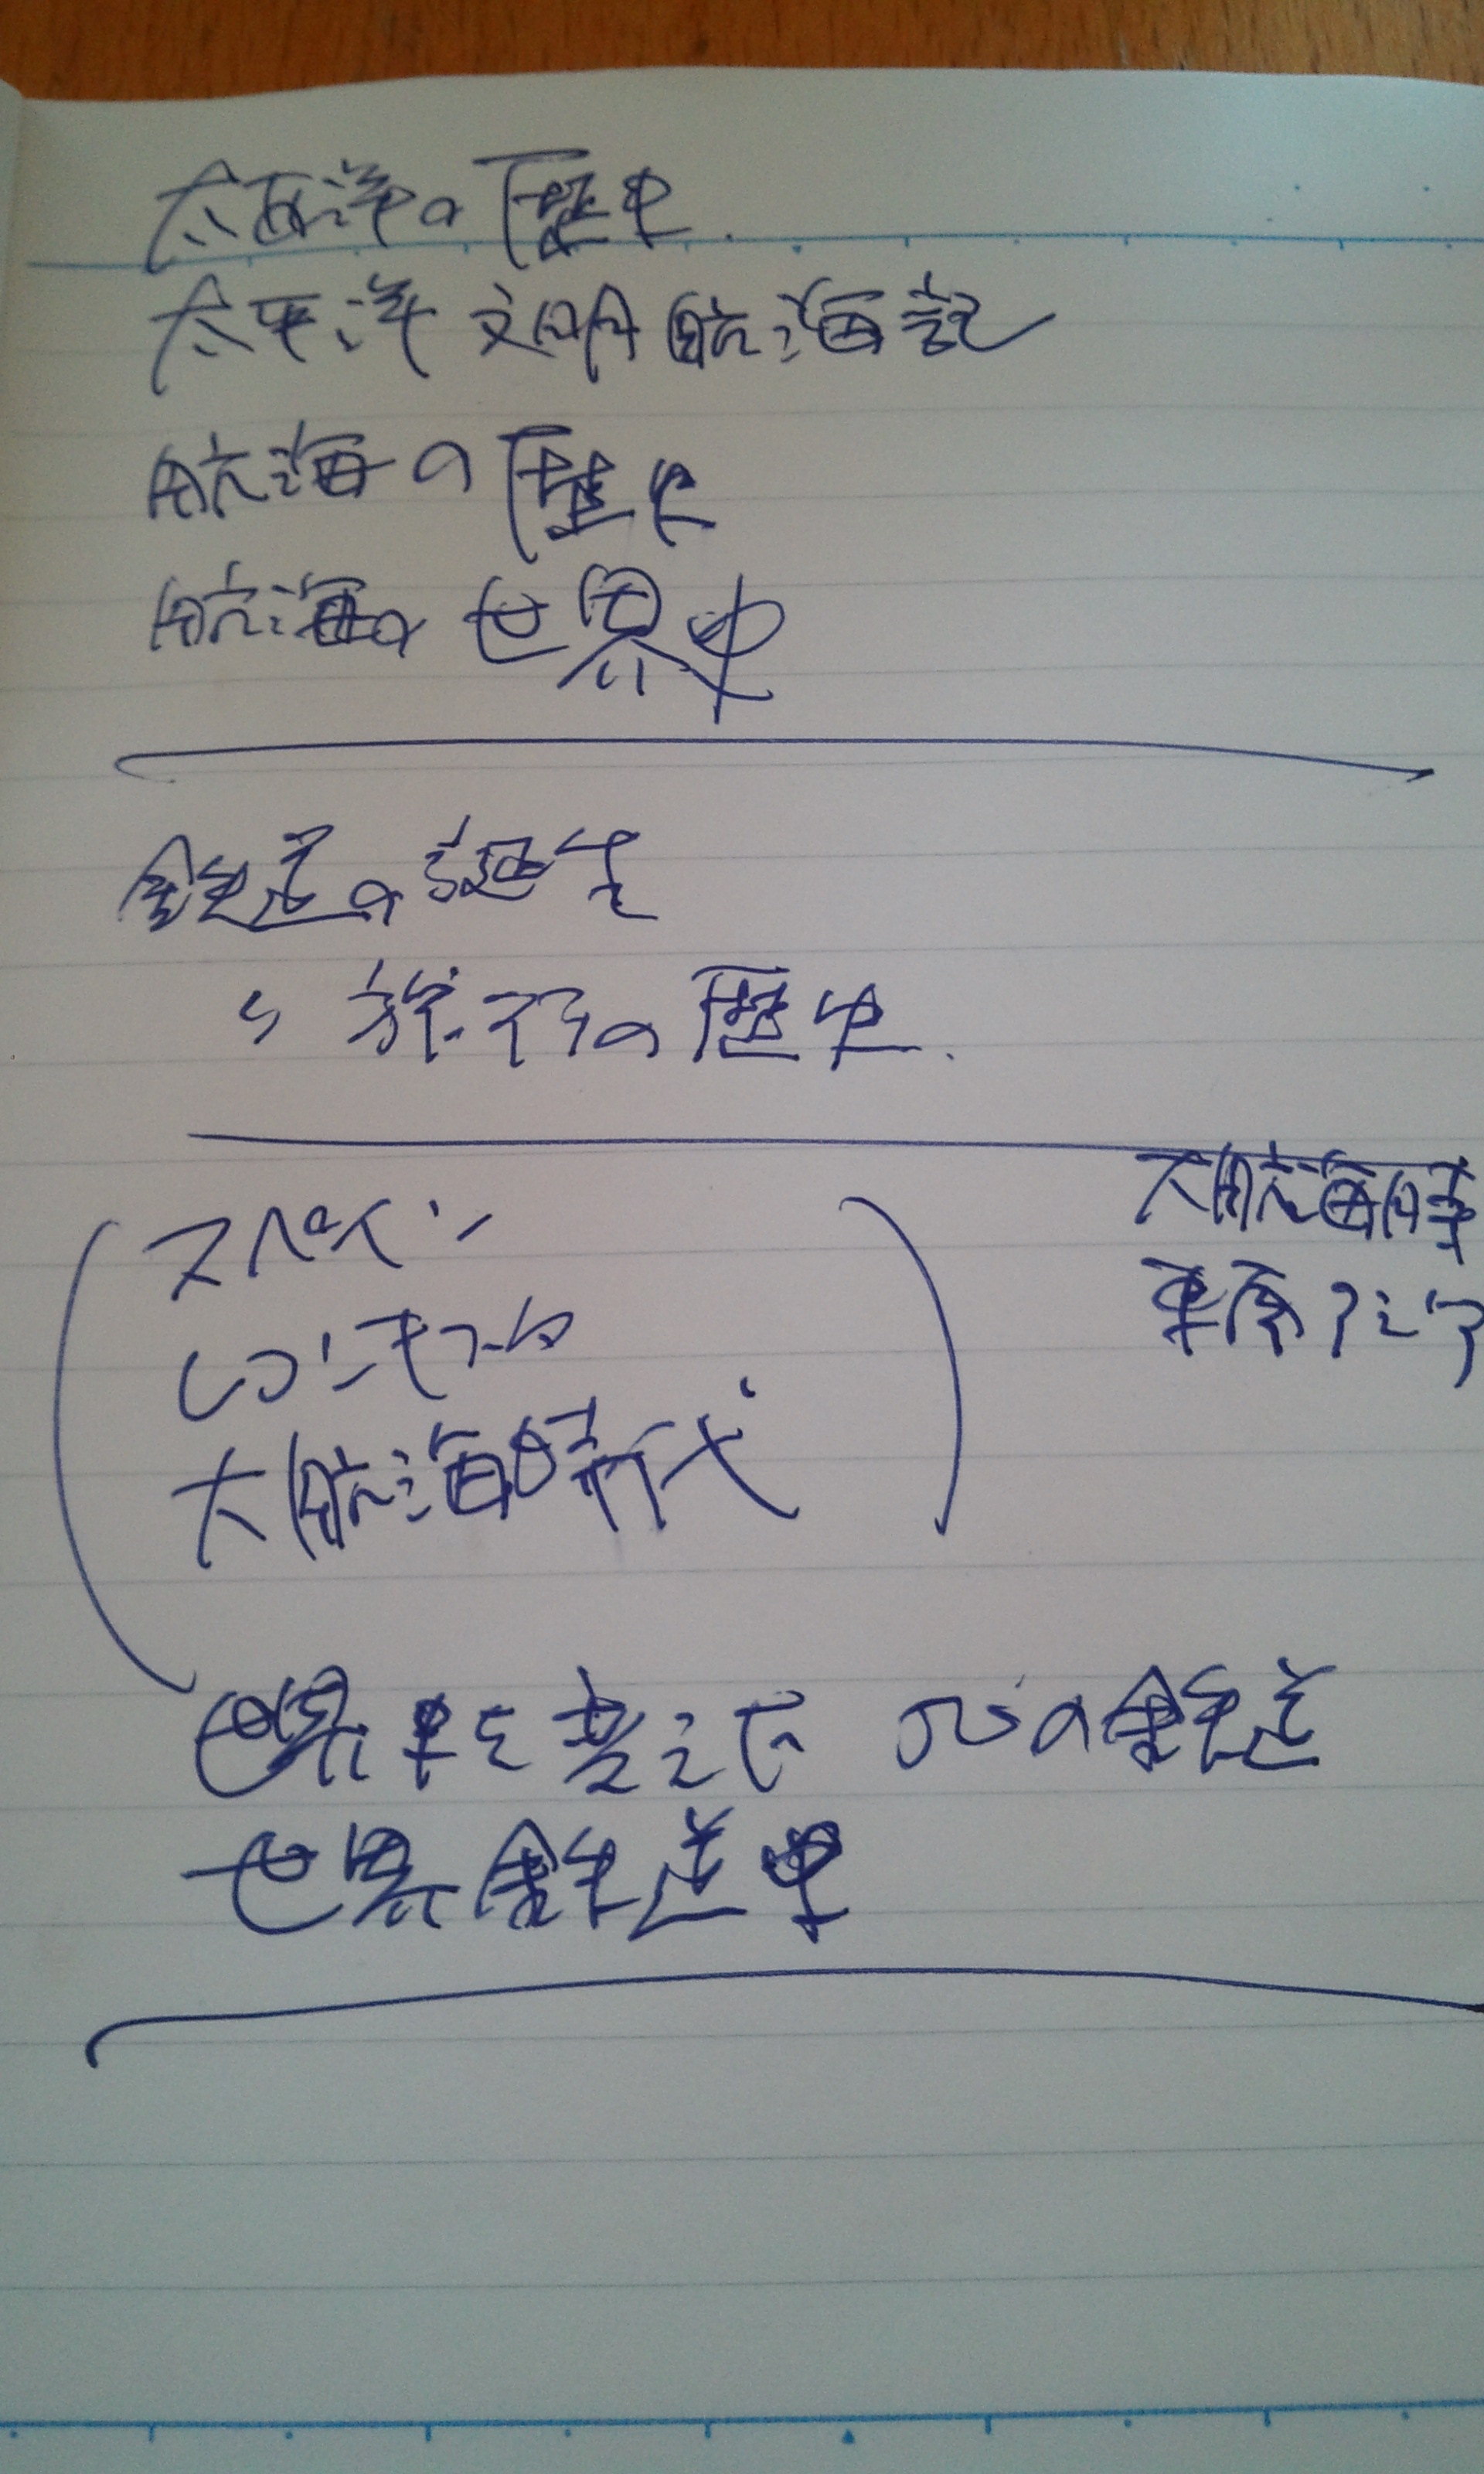 大西洋の歴史
太平洋文明航海記
航海の歴史
航海の世界史
鉄道の誕生
〃 旅行の歴史
大航海時
東南アジア
スペイン
レコンキスタ
大航海時代
世界史を変えた 50の鉄道
世界鉄道史